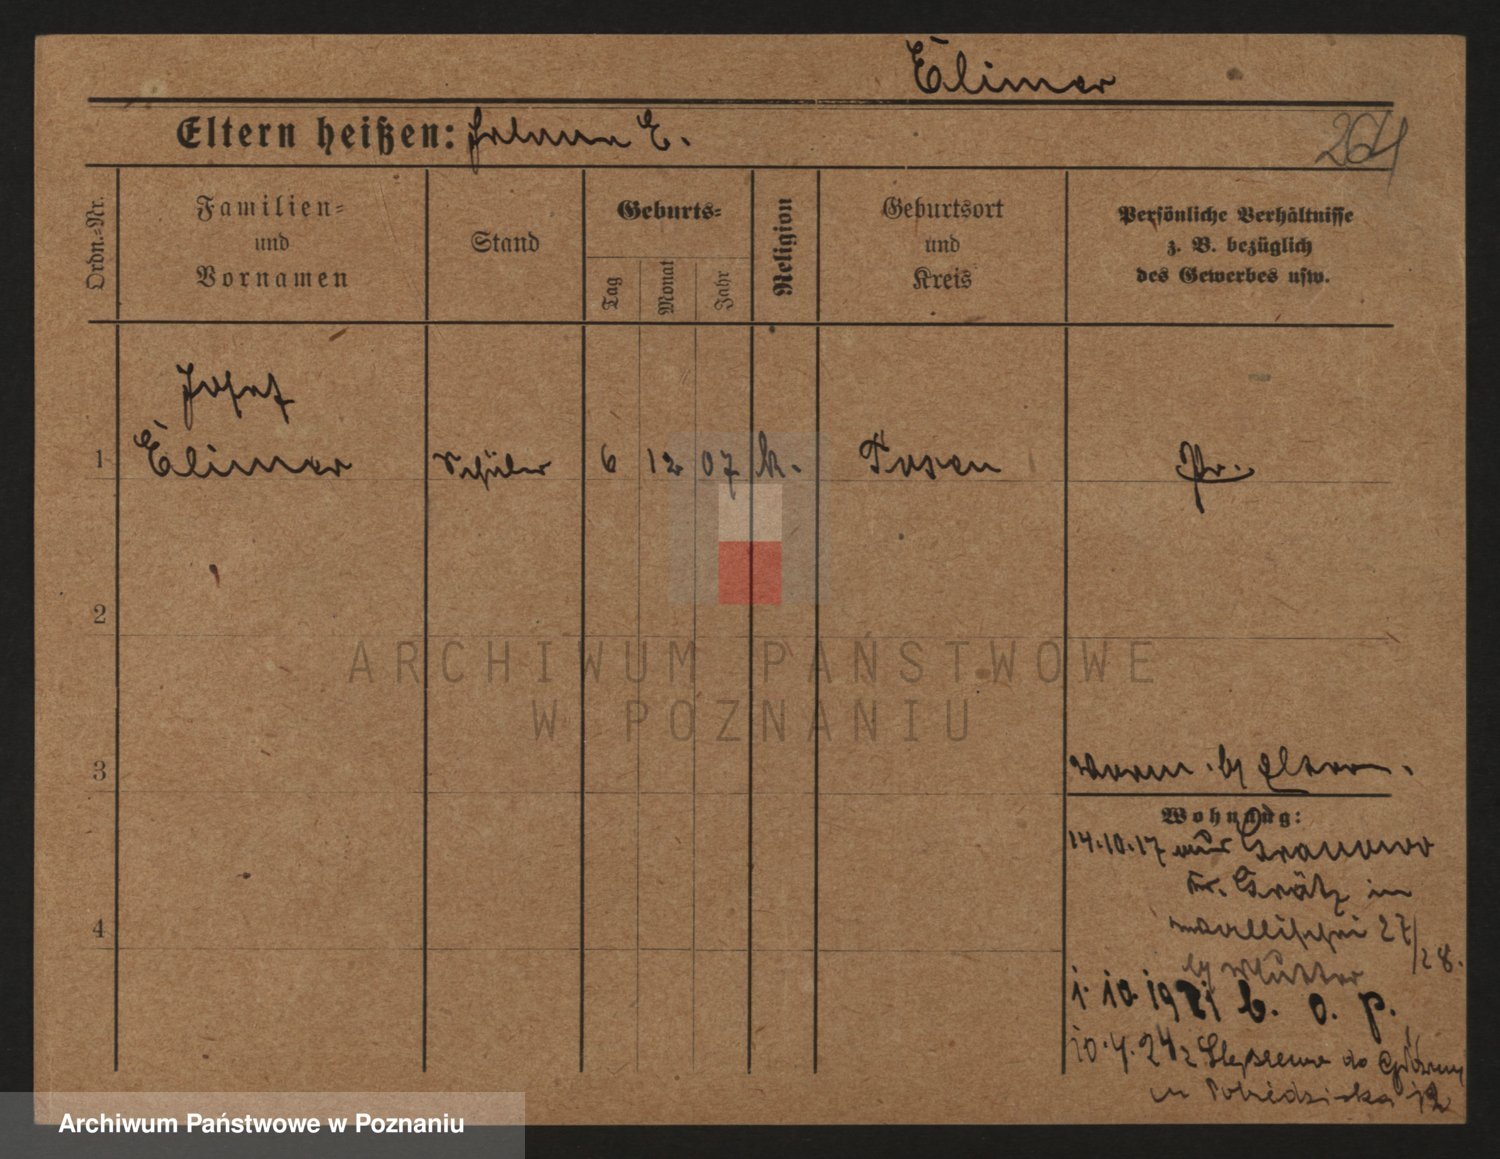 Elimer
Eltern heißen: Johann E.
264
Ordn.-Nr.
Familien-
und
Vornamen
Stand
Geburts-
Tag
Monat
Jahr
Religion
Geburtsort
und
Kreis
Persönliche Verhältnisse
z. B. bezüglich
des Gewerbes usw.
Josef
1 Elimer Schüler 6 12 07 k. Posen Pr.
2
3
4
vorm. b/ Eltern.
Wohnung:
14.10.17 aus Granowo
Kr. Grätz in
27/28.
b/ Mutter
1. 10 1921 b. o. p.
10.4.24 z do
ARCHIWUM PAŃSTWOWE
W POZNANIU
Archiwum Państwowe w Poznaniu